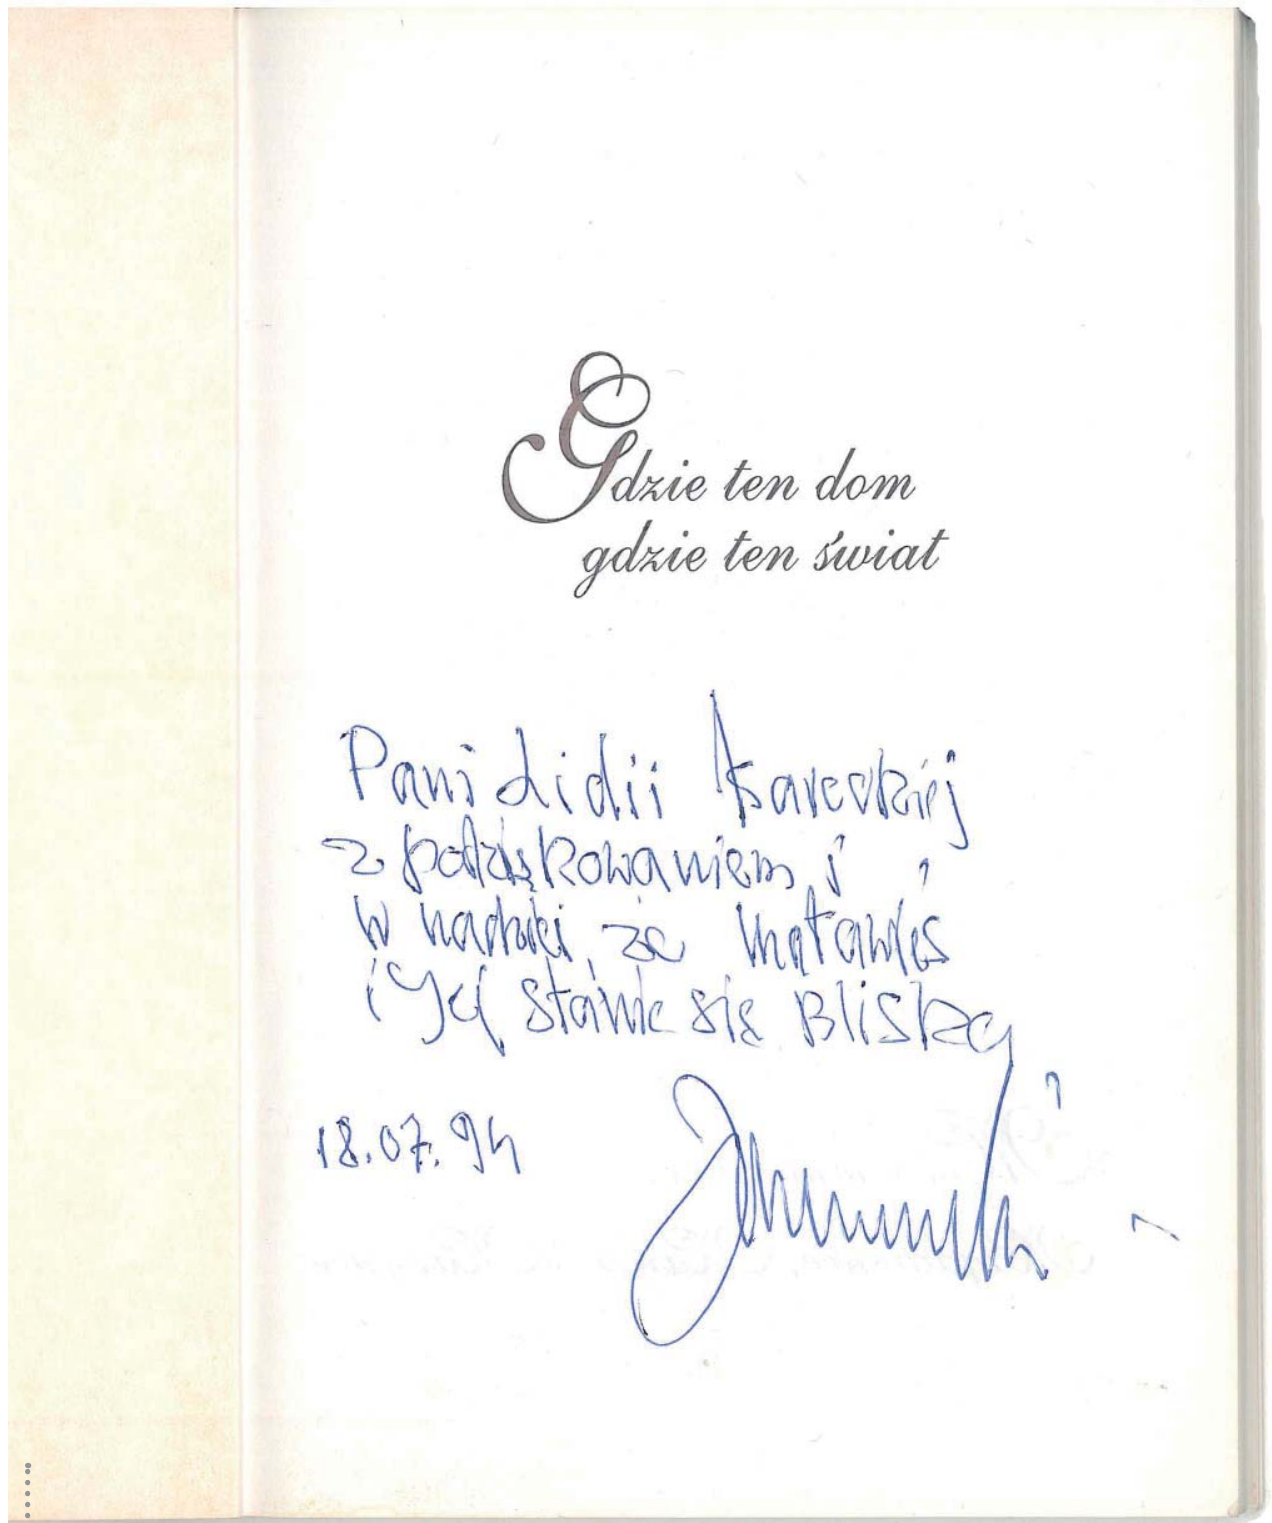 Gdzie ten dom
gdzie ten świat
Pani Lidii
z podziękowaniem i
w nadziei, że
i Jej stanie się Bliska
18.07.94